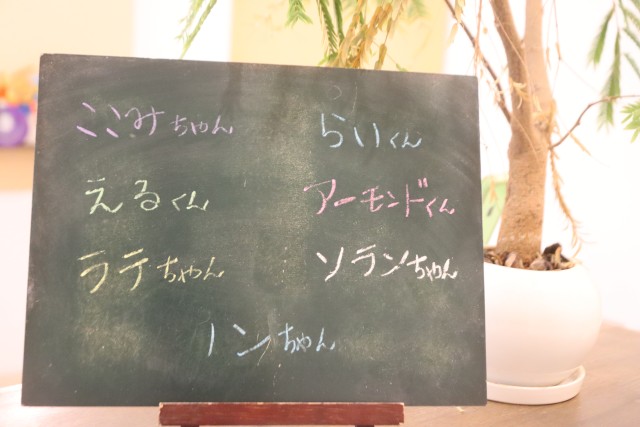 ここみちゃん
らいくん
えるくん
アーモンドくん
ラテちゃん
ソランちゃん
ノンちゃん